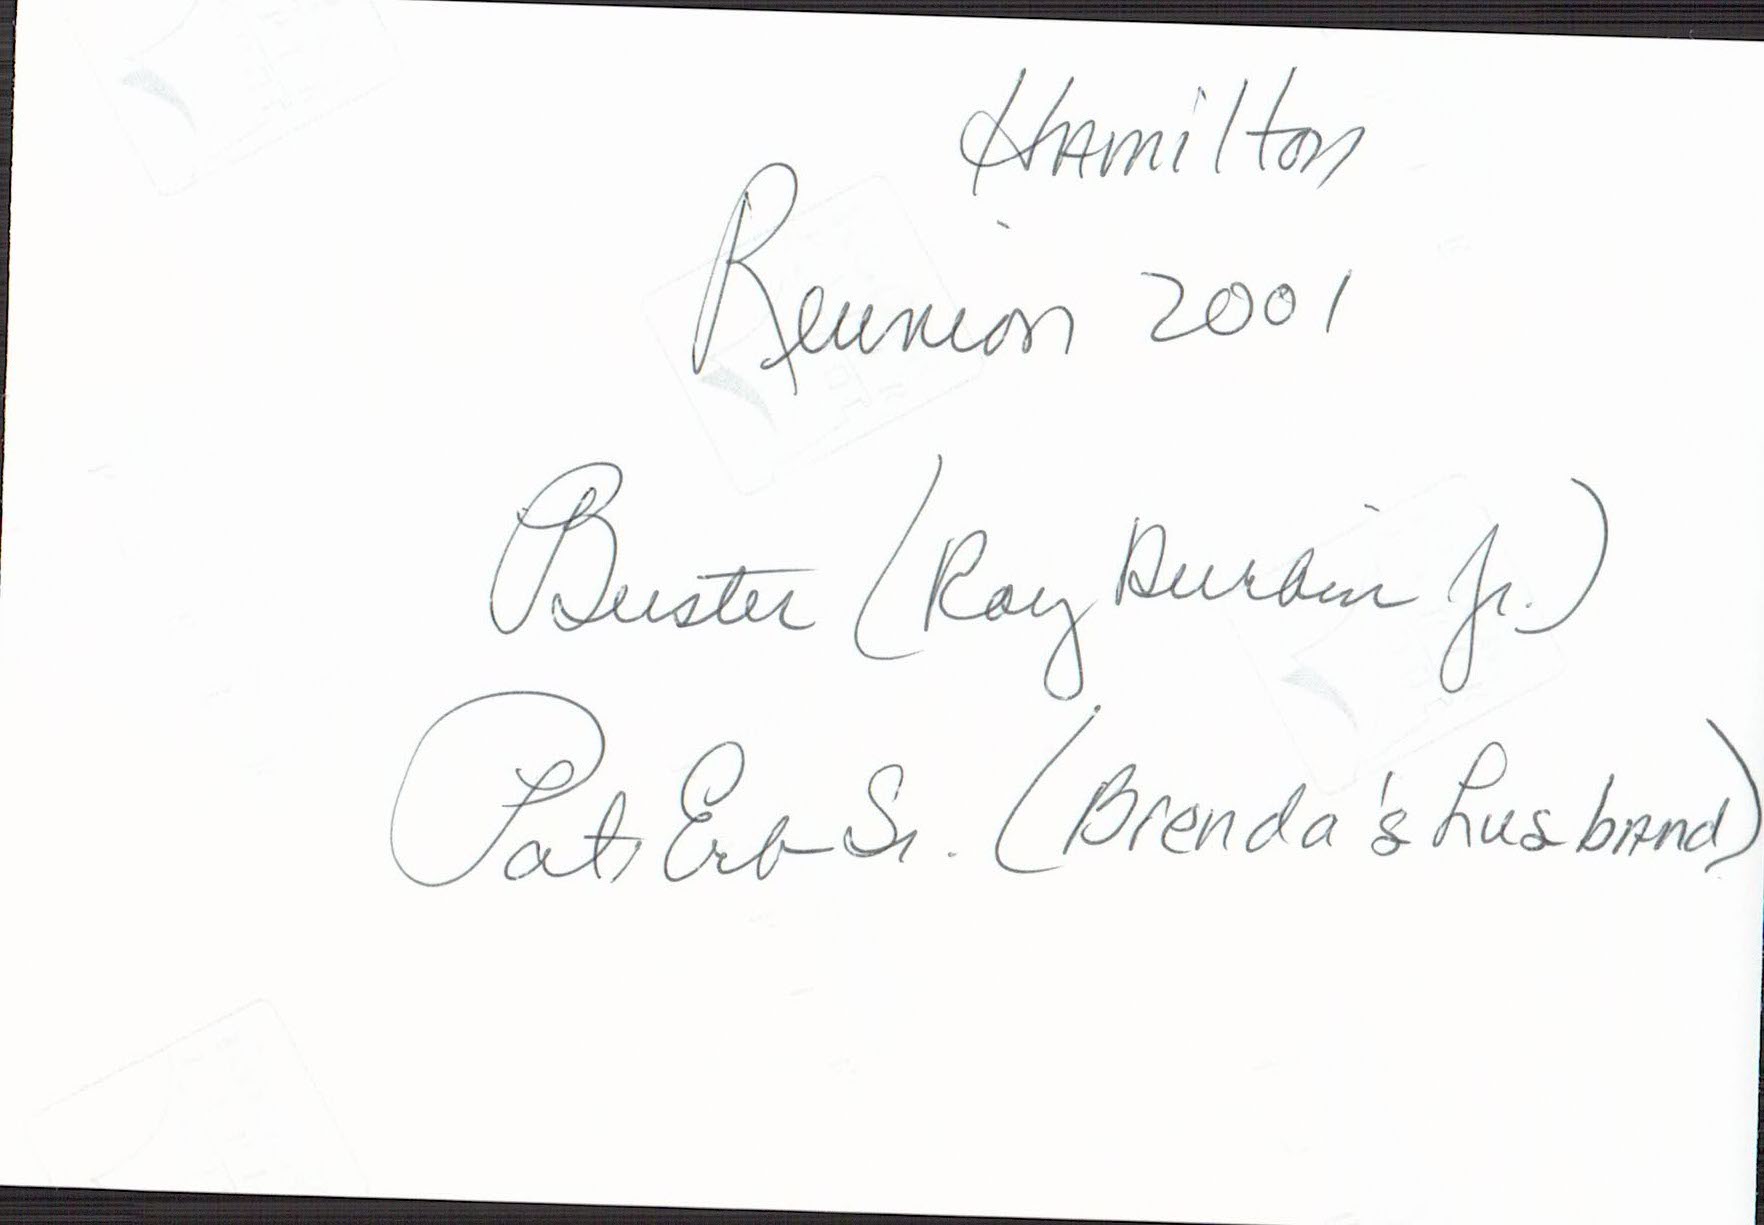 Hamilton
Reunion 2001
Buster (Ray Durbin Jr.)
Pat Erb Sr. (Brenda's husband)